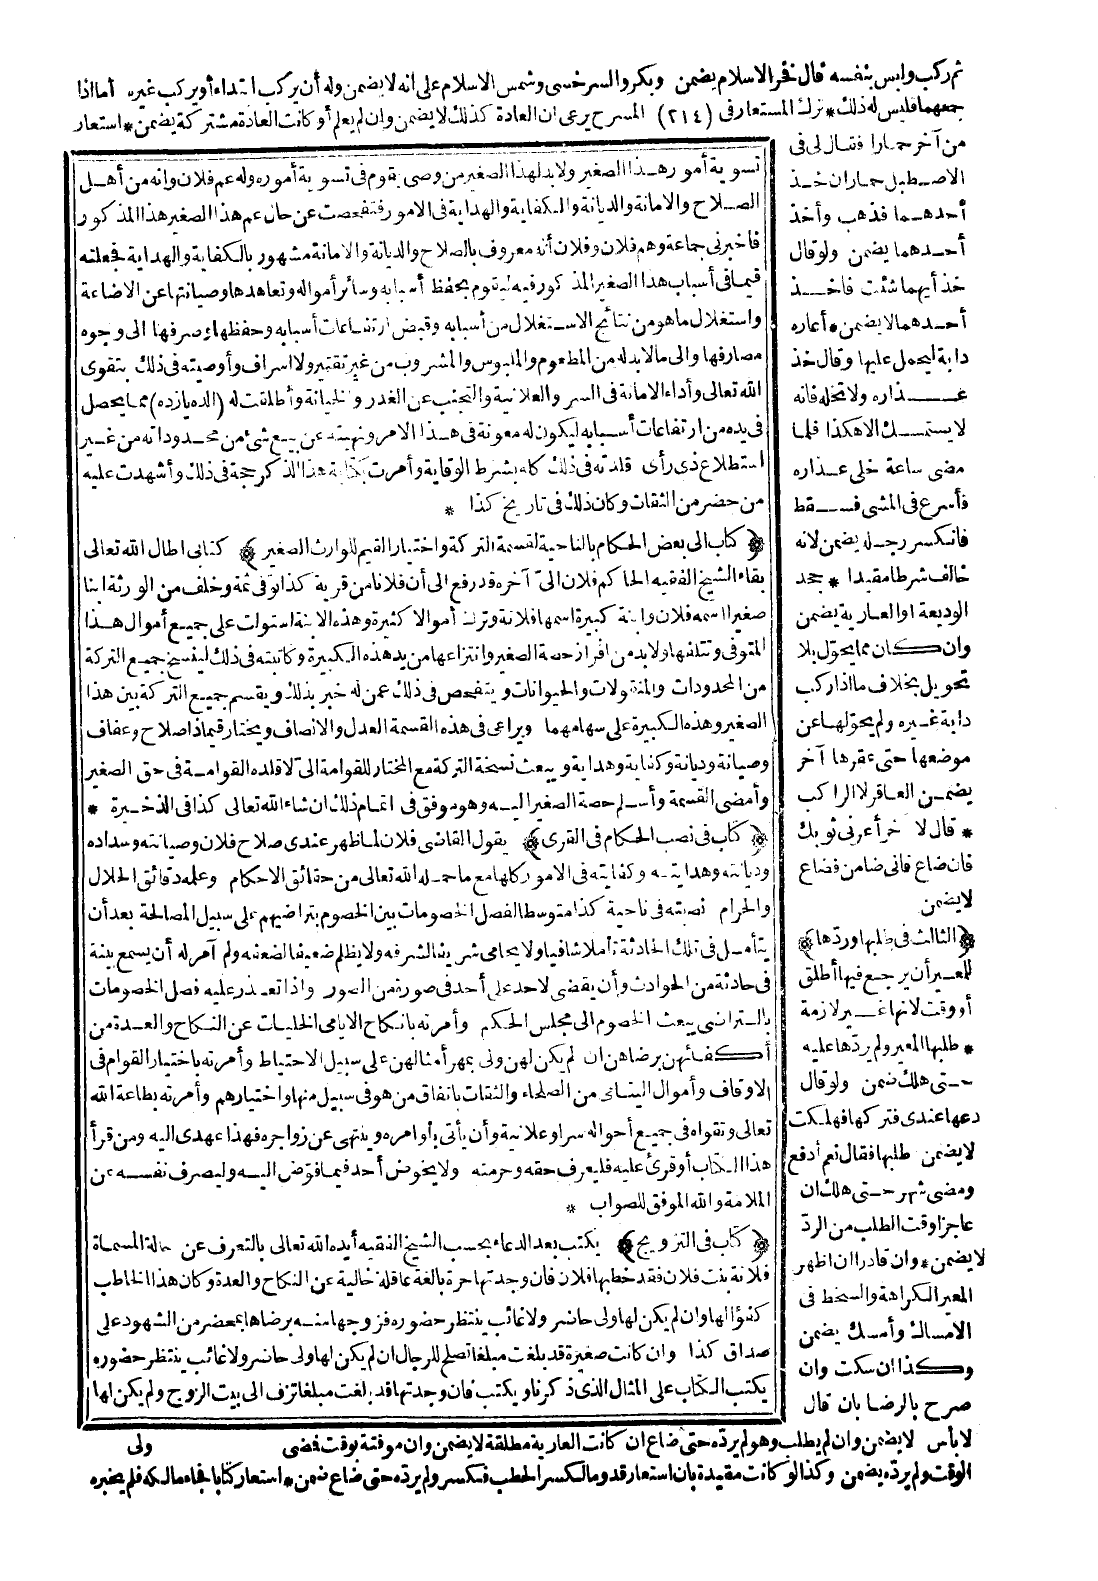 ثم ركب وليس بنفسه قال فخر الاسلام يضمن وبكر والسرخسى وشمس الاسلام على انه لا يضمن وله أن يركب ابتداء أو يركب غيره أما اذا
جمعهما فليس له ذلك * ترك المستعار فى (٢١٤) المسرح يرعى ان العادة كذلك لا يضمن وان لم يعلم أو كانت العادة مشتركة يضمن * استعار
من آخر حمارا فقال لى فى
الاصطبل حماران خذ
أحدهما فذهب وأخذ
أحدهما يضمن ولو قال
خذ أيهما شئت فاخذ
أحدهما لا يضمن * أعاره
دابة ليحمل عليها وقال خذ
عذاره ولا تخله فانه
لا يستمسك الا هكذا فلما
مضى ساعة خلى عذاره
فأسرع فى المشى فسقط
فانكسر رجله يضمن لانه
خالف شرطا مقيدا * جحد
الوديعة او العارية يضمن
وان كان مما يحوّل بلا
تحويل بخلاف ما اذا ركب
دابة غيره ولم يحوّلها عن
موضعها حتى عقرها آخر
يضمن العاقر لا الراكب
* قال لآخر أعرنى ثوبك
فان ضاع فانى ضامن فضاع
لا يضمن
﴿الثالث فى طلبها وردّها﴾
للمعير أن يرجع فيها أطلق
أو وقت لانها غير لازمة
* طلبها المعير ولم يردّها عليه
حتى هلك ضمن ولو قال
دعها عندى فتركها فهلكت
لا يضمن طلبها فقال نعم أدفع
ومضى شهر حتى هلك ان
عاجزا وقت الطلب من الردّ
لا يضمن * وان قادرا ان اظهر
المعير الكراهة والسخط فى
الامساك وأمسك يضمن
وكذا ان سكت وان
صرح بالرضا بان قال
لا بأس لا يضمن وان لم يطلب وهو لم يردّه حتى ضاع ان كانت العارية مطلقة لا يضمن وان موقتة بوقت فمضى
الوقت ولم يردّه يضمن وكذا لو كانت مقيدة بان استعار قدوما لكسر الحطب فكسر ولم يردّه حتى ضاع ضمن * استعار كتابا فجاء مالكه فلم يخبره
تسوية أمور هذا الصغير ولا بد لهذا الصغير من وصى يقوم فى تسوية أموره وله عم فلان وانه من أهل
الصلاح والامانة والديانة والكفاية والهداية فى الامور فتفحصت عن حال عم هذا الصغير هذا المذكور
فاخبرنى جماعة وهم فلان وفلان أنه معروف بالصلاح والديانة والامانة مشهور بالكفاية والهداية فجعلته
قيما فى أسباب هذا الصغير المذكور فيه ليقوم بحفظ أسبابه وسائر أمواله وتعاهدها وصيانتها عن الاضاعة
واستغلال ما هو من نتائج الاستغلال من أسبابه وقبض ارتفاعات أسبابه وحفظها وصرفها الى وجوه
مصارفها والى ما لا بد له من المطعوم والملبوس والمشروب من غير تقتير ولا اسراف وأوصيته فى ذلك بتقوى
الله تعالى وأداء الامانة فى السر والعلانية والتجنب عن الغدر والخيانة وأطلقت له (الده يازده) مما يحصل
فى يده من ارتفاعات أسبابه ليكون له معونة فى هذا الامر ونهيته عن بيع شئ من محدوداته من غير
استطلاع ذى رأى قلدته فى ذلك كله بشرط الوقاية وأمرت بكتابة هذا الذكر حجة فى ذلك وأشهدت عليه
من حضر من الثقات وكان ذلك فى تاريخ كذا *
﴿كتاب الى بعض الحكام بالناحية لقسمة التركة واختيار القيم للوارث الصغير﴾ كتابى اطال الله تعالى
بقاء الشيخ الفقيه الحاكم فلان الىّ آخره قد رفع الى أن فلانا من قرية كذا توفى ثمة وخلف من الورثة ابنا
صغيرا اسمه فلان وابنة كبيرة اسمها فلانة وترك أموالا كثيرة وهذه الابنة استولت على جميع أموال هذا
المتوفى وتتلفها ولا بد من افراز حصة الصغير وانتزاعها من يد هذه الكبيرة وكاتبته فى ذلك ليفسخ جميع التركة
من المحدودات والمنقولات والحيوانات ويتفحص فى ذلك عمن له خبر بذلك ويقسم جميع التركة بين هذا
الصغير وهذه الكبيرة على سهامهما ويراعى فى هذه القسمة العدل والانصاف ويختار قيما ذا صلاح وعفاف
وصيانة وديانة وكفاية وهداية ويبعث نسخة التركة مع المختار للقوامة الىّ لاقلده القوامة فى حق الصغير
وأمضى القسمة وأسلم حصة الصغير اليه وهو موفق فى اتمام ذلك ان شاء الله تعالى كذا فى الذخيرة *
﴿كتاب فى نصب الحكام فى القرى﴾ يقول القاضى فلان لما ظهر عندى صلاح فلان وصيانته وسداده
وديانته وهدايته وكفايته فى الامور كلها مع ما حمله الله تعالى من حقائق الاحكام وعلمه دقائق الحلال
والحرام نصبته فى ناحية كذا متوسطا لفصل الخصومات بين الخصوم بتراضيهم على سبيل المصالحة بعد أن
يتأمل فى تلك الحادثة تأملا شافيا ولا يحابى شريفا لشرفه ولا يظلم ضعيفا لضعفه ولم آمر له أن يسمع بينة
فى حادثة من الحوادث وأن يقضى لاحد على أحد فى صورة من الصور واذا تعذر عليه فصل الخصومات
بالتراضى يبعث الخصوم الى مجلس الحكم وأمرته بانكاح الايامى الخاليات عن النكاح والعدة من
أكفائهن برضاهن ان لم يكن لهن ولى بمهر أمثالهن على سبيل الاحتياط وأمرته باختيار القوام فى
الاوقاف وأموال اليتامى من الصلحاء والثقات باتفاق من هو فى سبيل منها واختيارهم وأمرته بطاعة الله
تعالى وتقواه فى جميع أحواله سرا وعلانية وأن يأتى بأوامره وينتهى عن زواجره فهذا عهدى اليه ومن قرأ
هذا الكتاب أو قرئ عليه فليعرف حقه وحرمته ولا يخوض أحد فيما فوّض اليه وليصرف نفسه عن
الملامة والله الموفق للصواب *
﴿كتاب فى التزويج﴾ يكتب بعد الدعاء بحسب الشيخ الفقيه أيده الله تعالى بالتعرف عن حالة المسماة
فلانة بنت فلان فقد خطبها فلان فان وجدتها حرة بالغة عاقلة خالية عن النكاح والعدة وكان هذا الخاطب
كفؤا لها وان لم يكن لها ولى حاضر ولا غائب ينتظر حضوره فزوجها منه برضاها بمحضر من الشهود على
صداق كذا وان كانت صغيرة قد بلغت مبلغا تصلح للرجال ان لم يكن لها ولى حاضر ولا غائب ينتظر حضوره
يكتب الكتاب على المثال الذى ذكرنا ويكتب فان وجدتها قد بلغت مبلغا تزف الى بيت الزوج ولم يكن لها
ولى